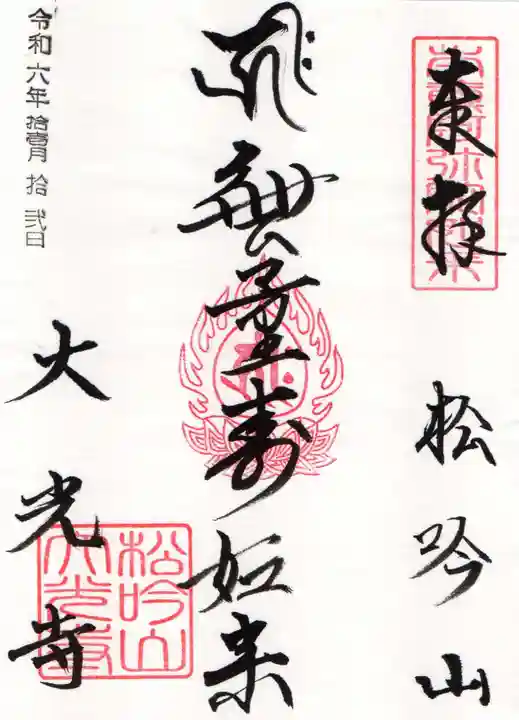 奉拝
松吟山
無量寿如来
令和六年 拾壹月 拾弐日
大光寺
松吟山
大光寺